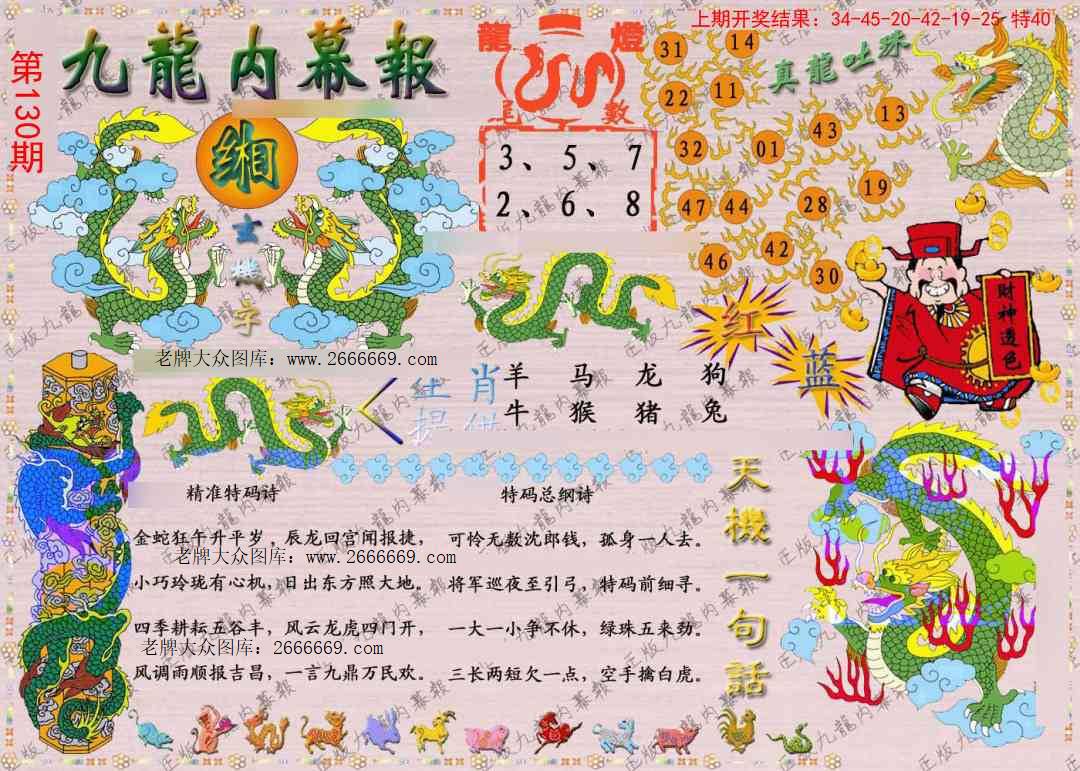 上期开奖结果：34-45-20-42-19-25 特40
第130期
九龍内幕報
龍 燈
尾 數
3、5、7
2、6、8
真龍吐珠
31 14
22 11
43 13
32 01
19
47 44 28
42
46 30
缃
玄
機
字
财神透色
红
蓝
老牌大众图库：www.2666669.com
生肖
提供
羊 马 龙 狗
牛 猴 猪 兔
精准特码诗
金蛇狂午升平岁，辰龙回宫闻报捷，
老牌大众图库：www.2666669.com
小巧玲珑有心机，日出东方照大地。
四季耕耘五谷丰，风云龙虎四门开，
老牌大众图库：2666669.com
风调雨顺报吉昌，一言九鼎万民欢。
特码总纲诗
可怜无数沈郎钱，孤身一人去。
将军巡夜至引弓，特码前细寻。
一大一小争不休，绿珠五来劲。
三长两短欠一点，空手擒白虎。
天機一句話
正版九龍内幕報